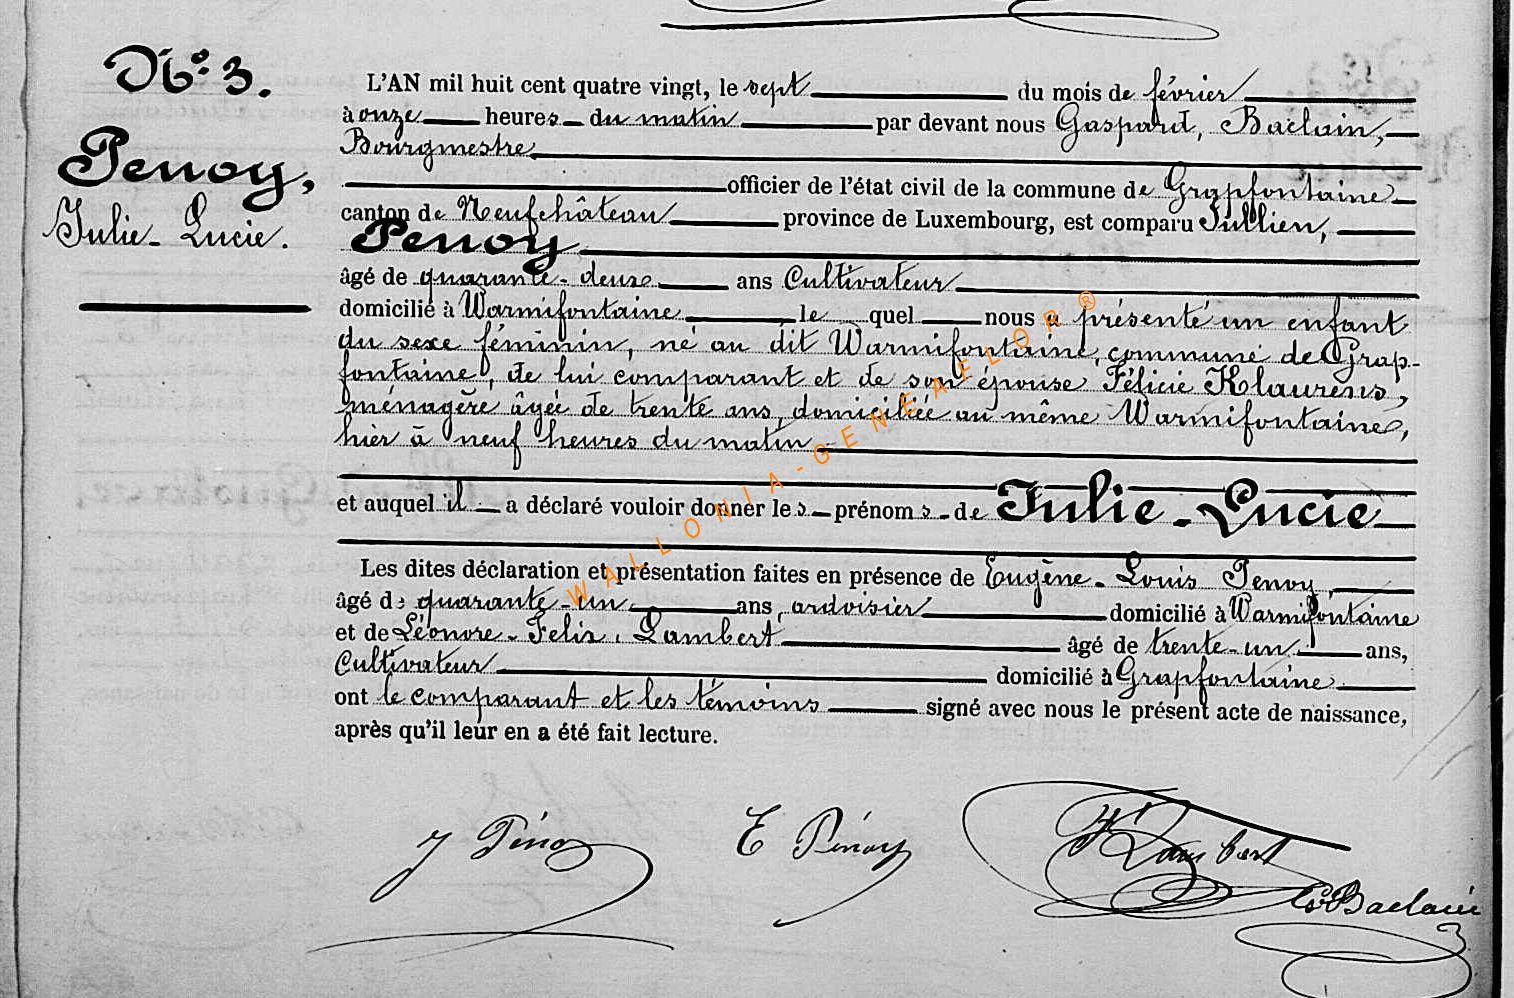 No. 3.
Penoy,
Julie-Lucie.
L'AN mil huit cent quatre vingt, le sept du mois de février
à onze heures du matin par devant nous Gaspard, Baclain,
Bourgmestre
officier de l'état civil de la commune de Grapfontaine
canton de Neufchâteau province de Luxembourg, est comparu Jullien,
Penoy
âgé de quarante-deux ans Cultivateur
domicilié à Warmifontaine lequel nous a présenté un enfant
du sexe féminin, né au dit Warmifontaine, commune de Grap-
fontaine, de lui comparant et de son épouse Félicie Klaurens,
ménagère âgée de trente ans, domiciliée au même Warmifontaine,
hier à neuf heures du matin
et auquel il a déclaré vouloir donner les prénoms de Julie-Lucie
Les dites déclaration et présentation faites en présence de Eugène-Louis Penoy,
âgé de quarante-un ans, ardoisier domicilié à Warmifontaine
et de Léonore-Felix, Lambert âgé de trente-un ans,
Cultivateur domicilié à Grapfontaine
ont le comparant et les témoins signé avec nous le présent acte de naissance,
après qu'il leur en a été fait lecture.
J Pénoy E Pénoy Lambert
G Baclain
WALLONIA-GENEAELOR®